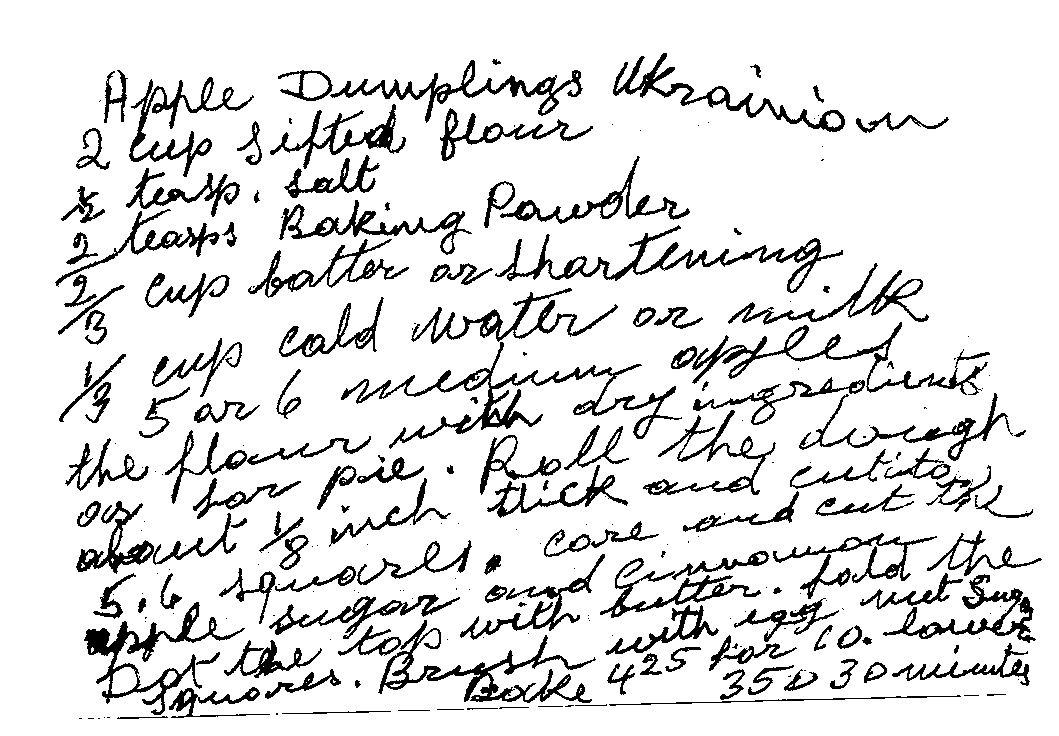 Apple Dumplings Ukrainian
2 cup sifted flour
1/2 teasp. salt
2 teasps Baking Powder
2/3 cup batter or shartening
1/3 cup cald water or milk
5 or 6 medium apples
the flour with dry ingredients
as for pie. Roll the dough
about 1/8 inch thick and cut ito
5.6 squares. care and cut the
apple sugar and cinnamon
Dot the top with butter. fold the
squares. Brush with egg Sug
Bake 425 for 10. lower
350 30 minutes